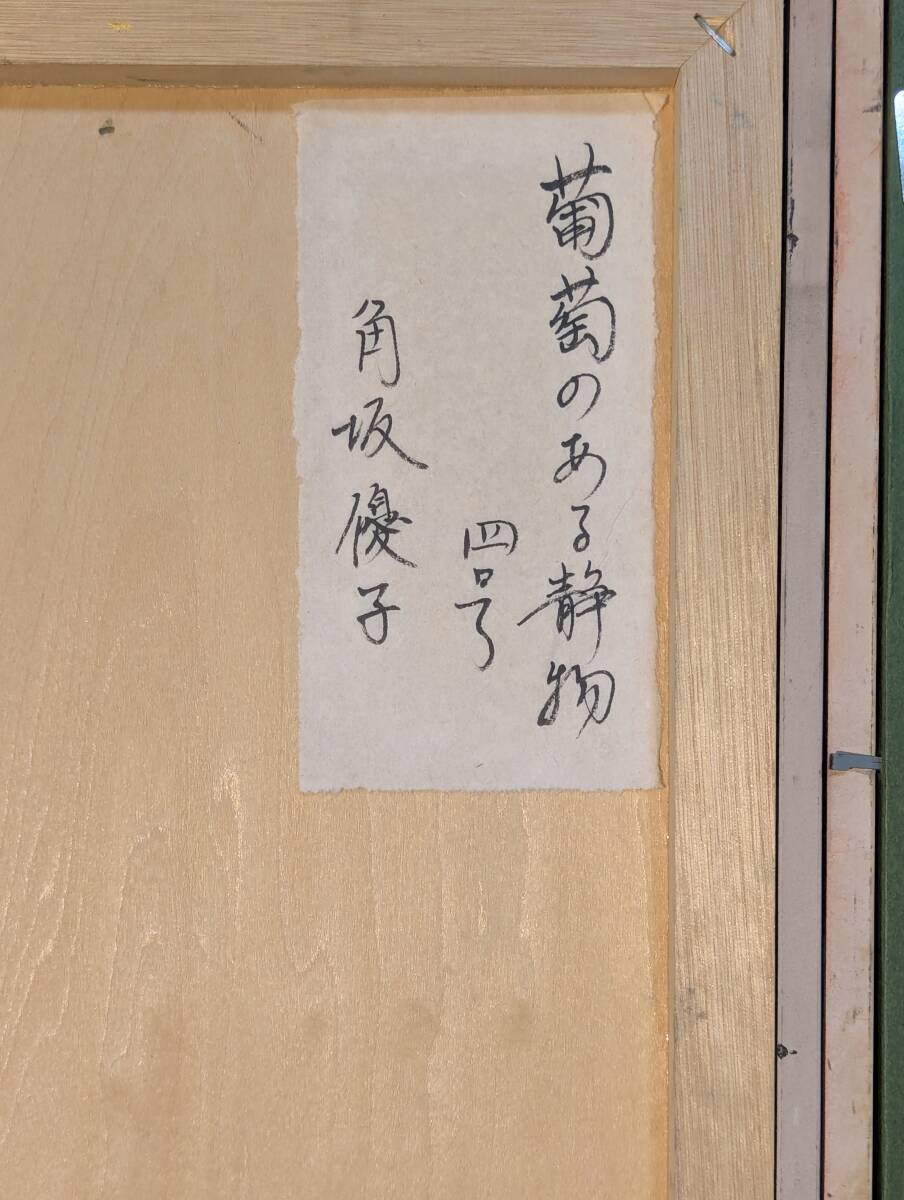 葡萄のある静物
四号
角坂優子